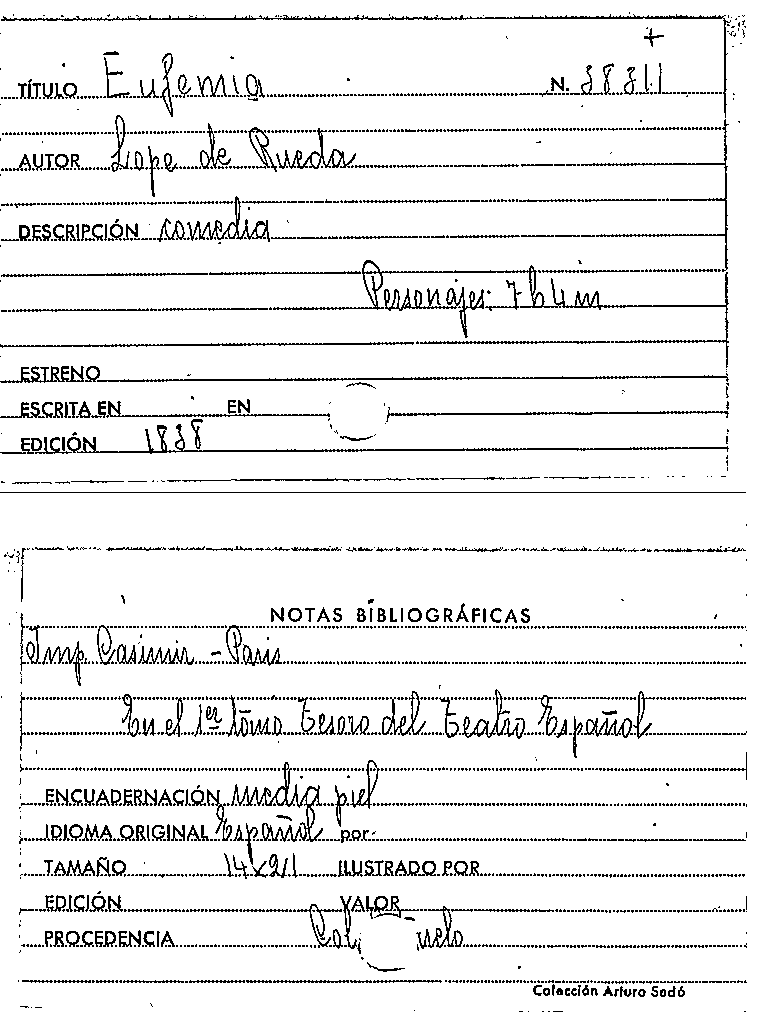 +
TÍTULO Eufemia N. 38311
AUTOR Lope de Rueda
DESCRIPCIÓN comedia
Personajes: 7 h 4 m
ESTRENO
ESCRITA EN EN
EDICIÓN 1838
NOTAS BIBLIOGRÁFICAS
Imp. Casimir - Paris
En el 1er tomo Tesoro del Teatro Español
ENCUADERNACIÓN media piel
IDIOMA ORIGINAL Español por
TAMAÑO 14x21 ILUSTRADO POR
EDICIÓN VALOR
PROCEDENCIA
Colección Arturo Sedó